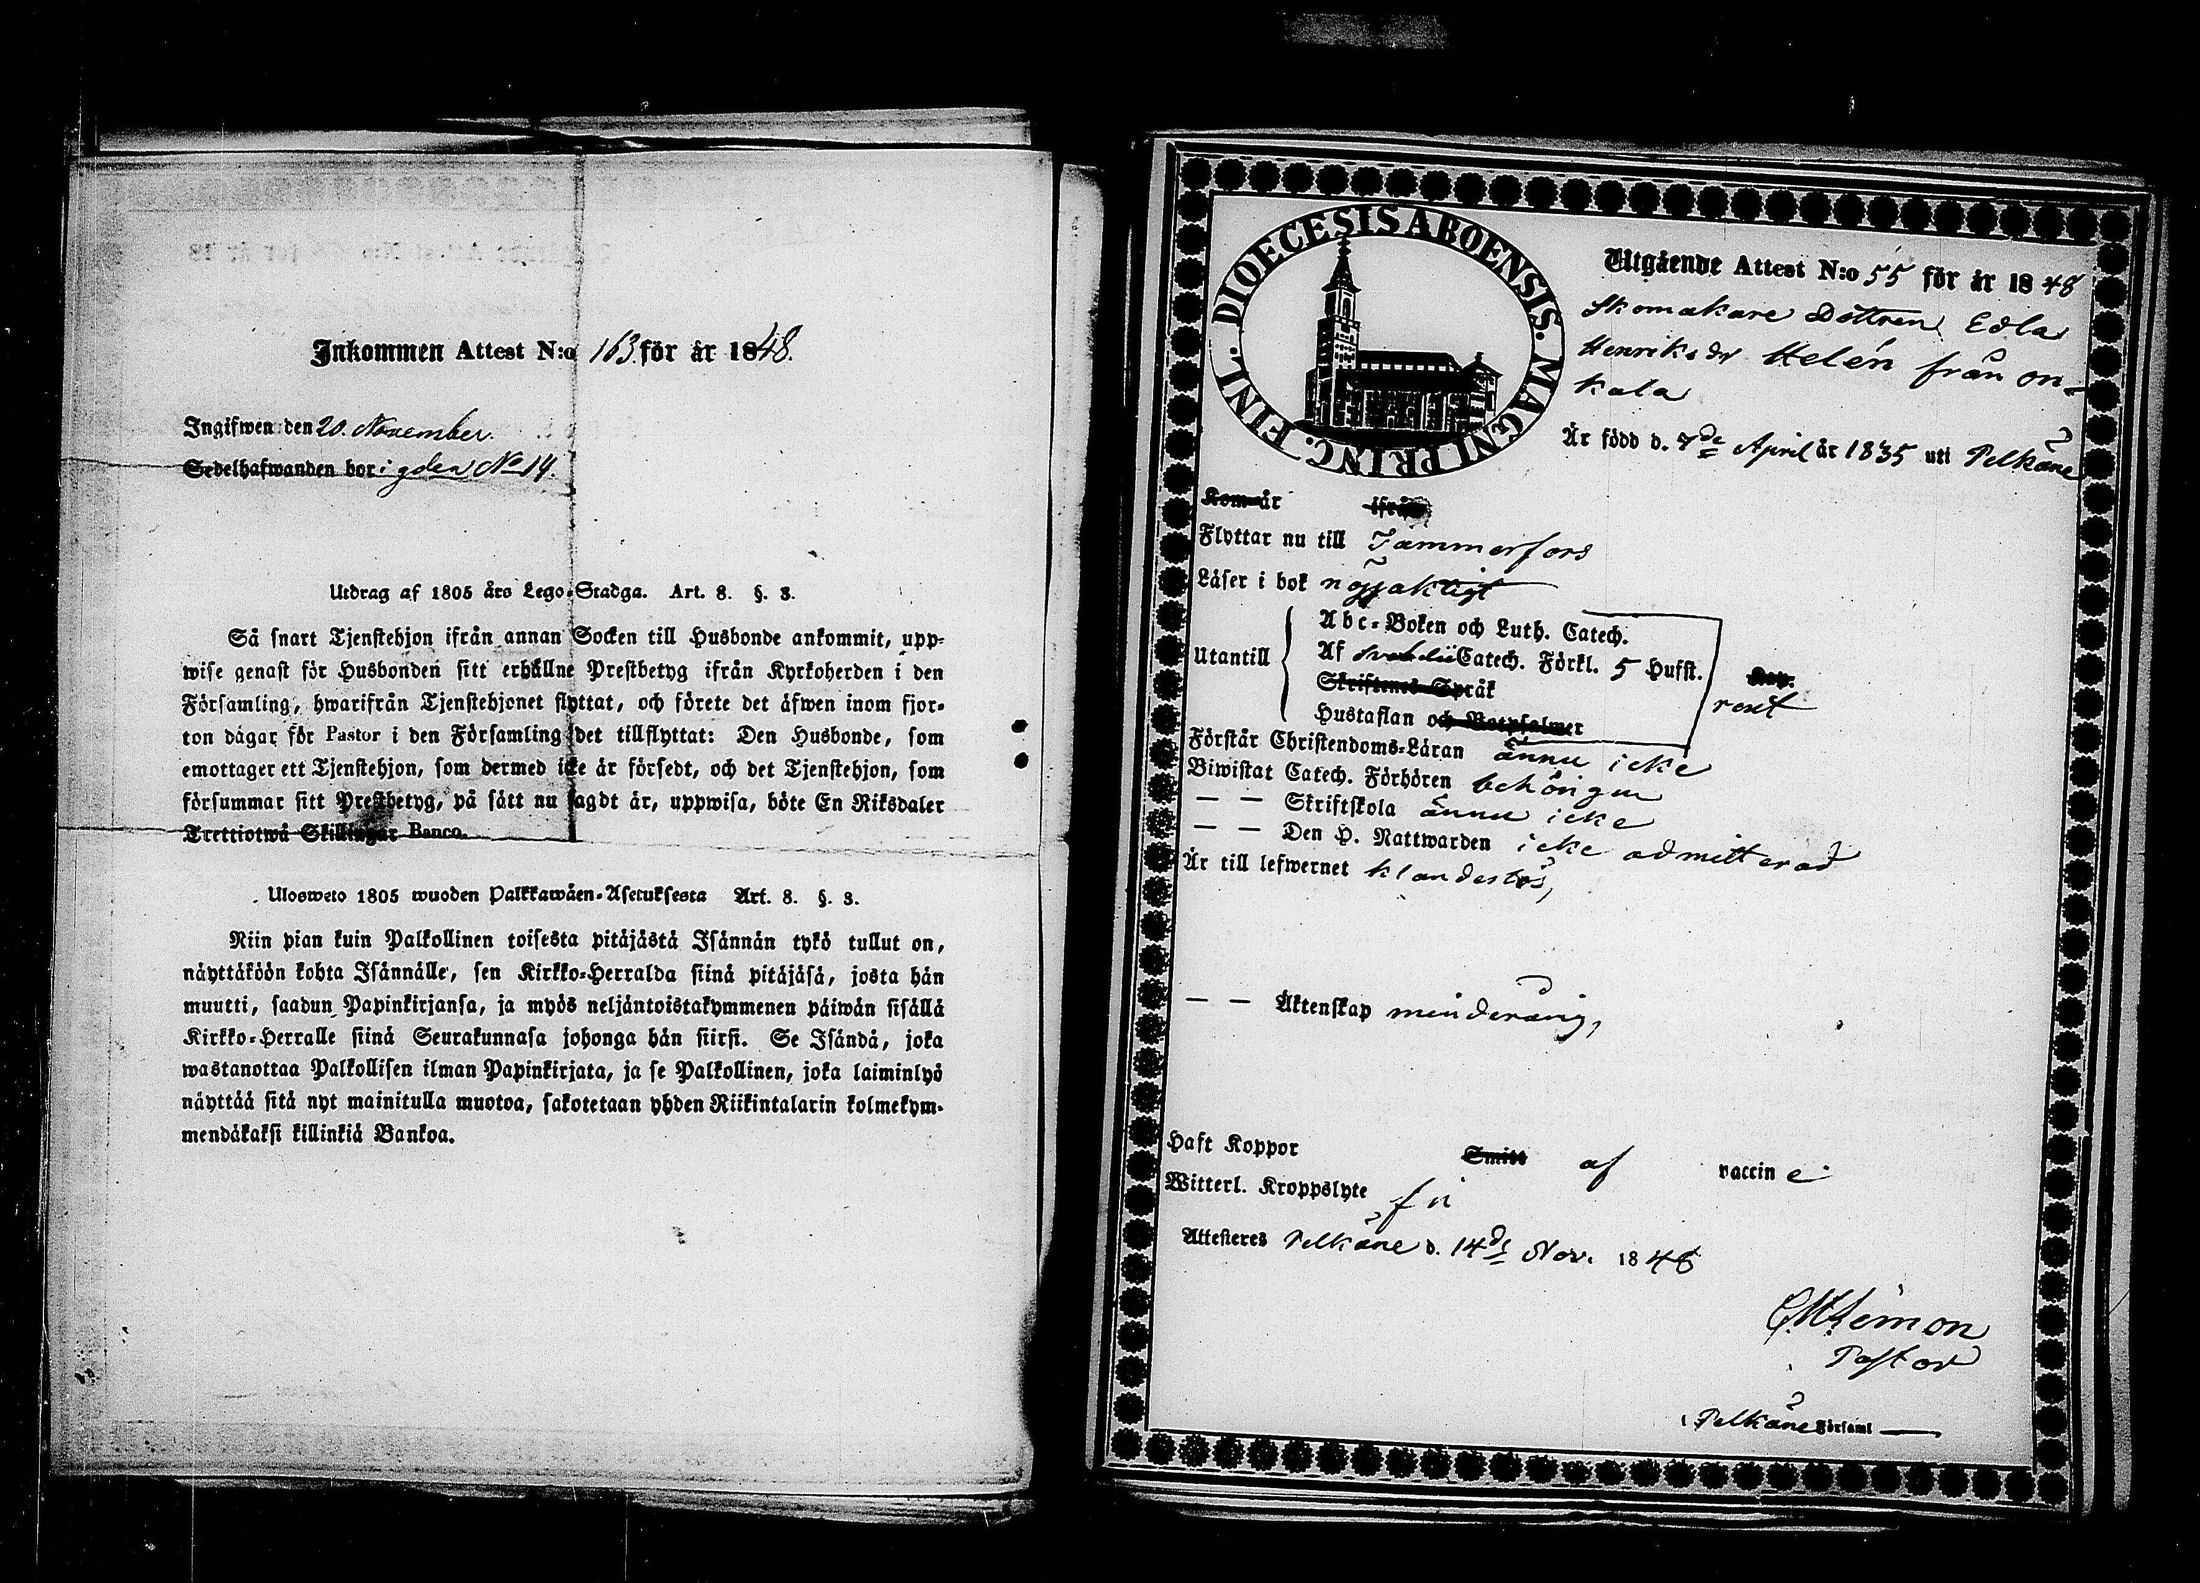 Inkommen Attest N:o 163. för år 1848.
Ingifwen den 20. November.
Sedelhafwanden bor i gden No 14.
Utdrag af 1805 års Lego-Stadga. Art. 8. §. 3.
Så snart Tjenstehjon ifrån annan Socken till Husbonde ankommit, upp-
wise genast för Husbonden sitt erhållne Prestbetyg ifrån Kyrkoherden i den
Församling, hwarifrån Tjenstehjonet flyttat, och förete det äfwen inom fjor-
ton dagar för Pastor i den Församling det tillflyttat: Den Husbonde, som
emottager ett Tjenstehjon, som dermed icke är försedt, och det Tjenstehjon, som
försummar sitt Prestbetyg, på sätt nu sagdt är, uppwisa, böte En Riksdaler
Trettiotwå Skillingar Banco.
Ulosweto 1805 wuoden Palkkawäen-Asetuksesta Art. 8. §. 3.
Niin pian kuin Palkollinen toisesta pitäjästä Isännän tykö tullut on,
näyttäköön kohta Isännälle, sen Kirkko-Herralda siinä pitäjäsä, josta hän
muutti, saadun Papinkirjansa, ja myös neljäntoistakymmenen päiwän sisällä
Kirkko-Herralle siinä Seurakunnasa johonga hän siirsi. Se Isändä, joka
wastanottaa Palkollisen ilman Papinkirjata, ja se Palkollinen, joka laiminlyö
näyttää sitä nyt mainitulla muotoa, sakotetaan yhden Riikintalarin kolmekym-
mendäkaksi killinkiä Bankoa.
DIOECESIS ABOENSIS. MAGNI PRINC. FINL.
Utgående Attest N:o 55 för år 1848
Skomakare Dottren Edla
Henriksdr Helén från On-
kala
Är född d. 7de April år 1835 uti Pelkäne
Kom år ifrån
Flyttar nu till Tammerfors
Läser i bok nöjaktigt
Utantill
Abc-Boken och Luth. Catech.
Af Catech. Förkl. 5 Hufst.
Skriftenes Språk
Hustaflan och Botpsalmer
rent
Förstår Christendoms-Läran ännu icke
Biwistat Catech. Förhören behörigen
— — Skriftskola ännu icke
— — Den H. Nattwarden icke admitterad
Är till lefwernet klanderlös,
— — Äktenskap minderårig,
Haft Koppor Smitt af vaccine
Witterl. Kroppslyte fri
Attesteras Pelkäne d. 14de Nov. 1848
Pastor
i Pelkäne Församl